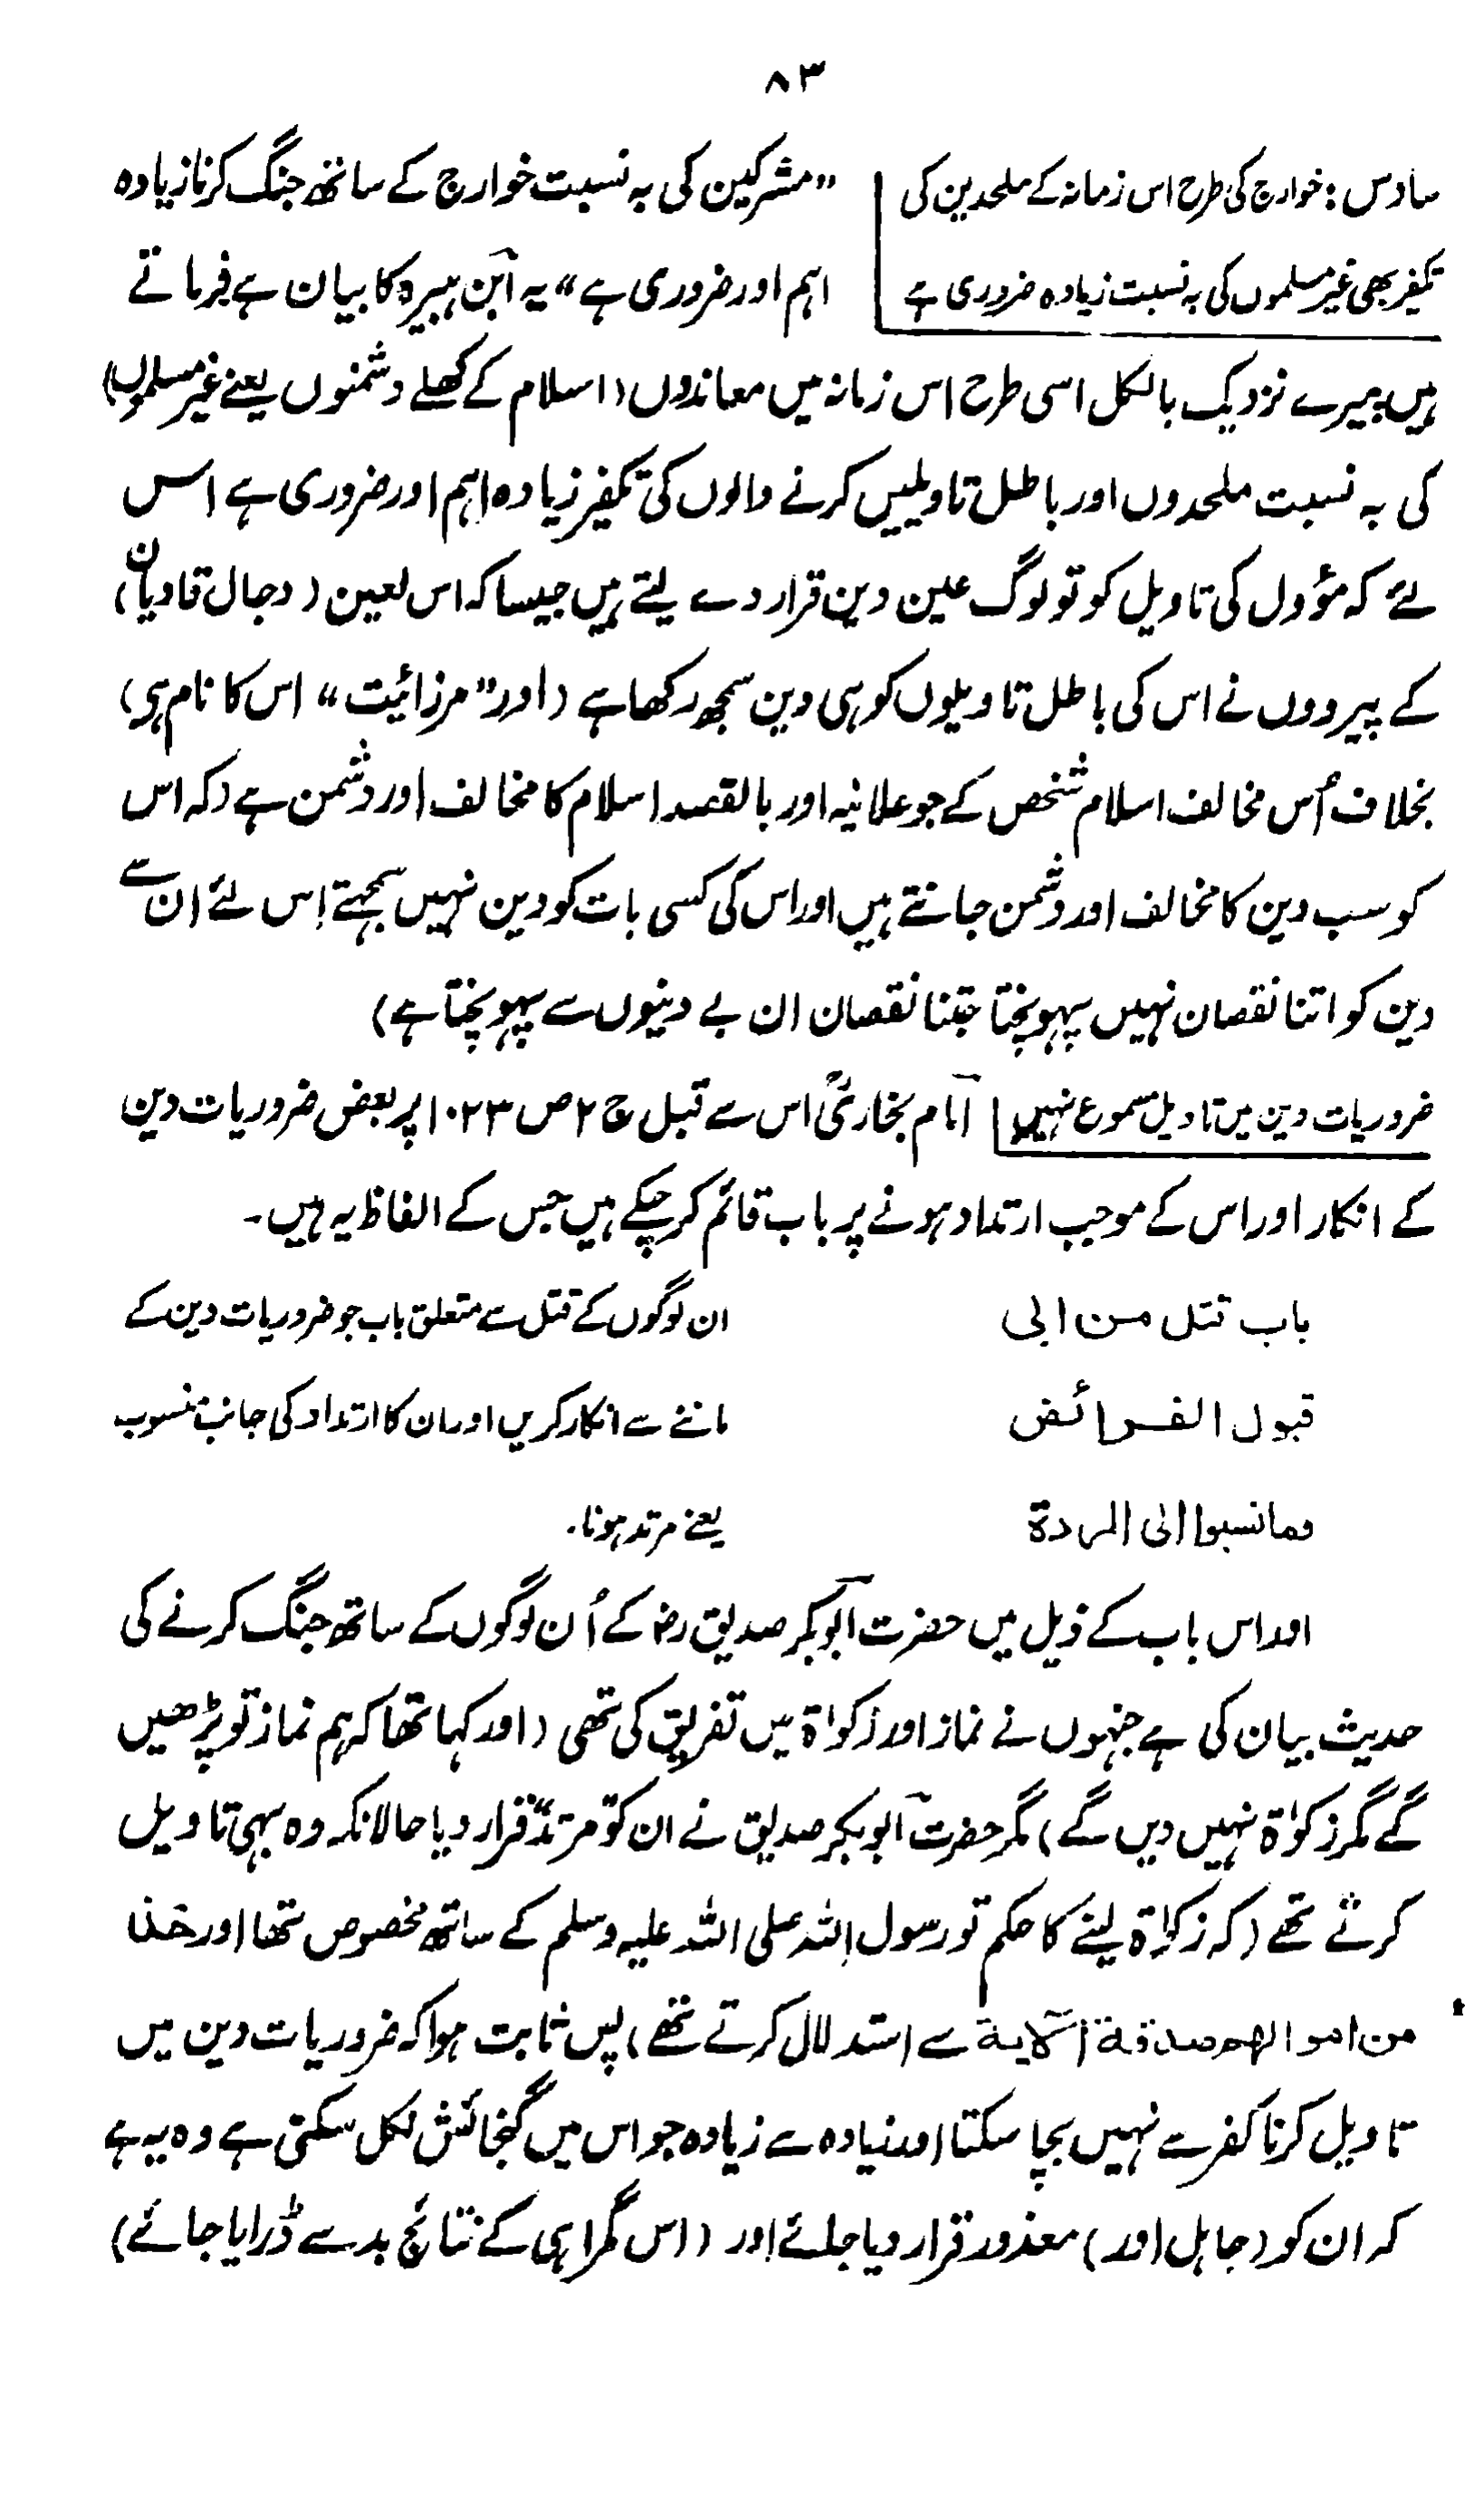 ۸۳
سادس: خوارج کی طرح اس زمانہ کے ملحدین کی
تکفیر بھی غیر مسلموں کی بہ نسبت زیادہ ضروری ہے
"مشرکین کی بہ نسبت خوارج کے ساتھ جنگ کرنا زیادہ
اہم اور ضروری ہے" یہ ابن ہبیرہ کا بیان ہے فرماتے
ہیں میرے نزدیک بالکل اسی طرح اس زمانہ میں معاندوں (اسلام کے کھلے دشمنوں یعنے غیر مسلموں)
کی بہ نسبت ملحدوں اور باطل تاویلیں کرنے والوں کی تکفیر زیادہ اہم اور ضروری ہے اس
لئے کہ مؤول کی تاویل کو تو لوگ عین دین قرار دے لیتے ہیں جیسا کہ اس لعین (دجال قادیان)
کے پیرووں نے اس کی باطل تاویلوں کو ہی دین سمجھ رکھا ہے (اور "مرزائیت" اس کا نام ہی)
بخلاف اُس مخالف اسلام شخص کے جو علانیہ اور بالقصد اسلام کا مخالف اور دشمن ہے (کہ اس
کو سب دین کا مخالف اور دشمن جانتے ہیں اور اس کی کسی بات کو دین نہیں سمجہتے اِس لئے ان سے
دین کو اتنا نقصان نہیں پہونچتا جتنا نقصان ان بے دینوں سے پہونچتا ہے)
ضروریات دین میں تاویل مسموع نہیں
امام بخاریؒ اس سے قبل ج ۲ ص ۱۰۲۳ پر بعض ضروریات دین
کے انکار اور اس کے موجب ارتداد ہونے پر باب قائم کر چکے ہیں جس کے الفاظ یہ ہیں۔
باب قتل من ابی
ان لوگوں کے قتل سے متعلق باب جو ضروریات دین کے
قبول الفرائض
ماننے سے انکار کریں اور ان کا ارتداد کی جانب منسوب
وما نسبوا الی الردة
یعنے مرتد ہونا۔
اور اس باب کے ذیل میں حضرت ابوبکر صدیق رضؓ کے اُن لوگوں کے ساتھ جنگ کرنے کی
حدیث بیان کی ہے جنہوں نے نماز اور زکواۃ میں تفریق کی تھی (اور کہا تھا کہ ہم نماز تو پڑھیں
گے مگر زکواۃ نہیں دیں گے) مگر حضرت ابوبکر صدیق نے ان کو "مرتد" قرار دیا حالانکہ وہ بہی تاویل
کرتے تھے (کہ زکواۃ لینے کا حکم تو رسول اللہ صلی اللہ علیہ وسلم کے ساتھ مخصوص تھا اور خذ
من اموالھم صدقة الآیة سے استدلال کرتے تھے) پس ثابت ہوا کہ ضروریات دین میں
تاویل کرنا کفر سے نہیں بچا سکتا اور زیادہ سے زیادہ جو اس میں گنجائش نکل سکتی ہے وہ یہ ہے
کہ ان کو (جاہل اور) معذور قرار دیا جائے اور (اس گمراہی کے نتائج بد سے ڈرایا جائے)